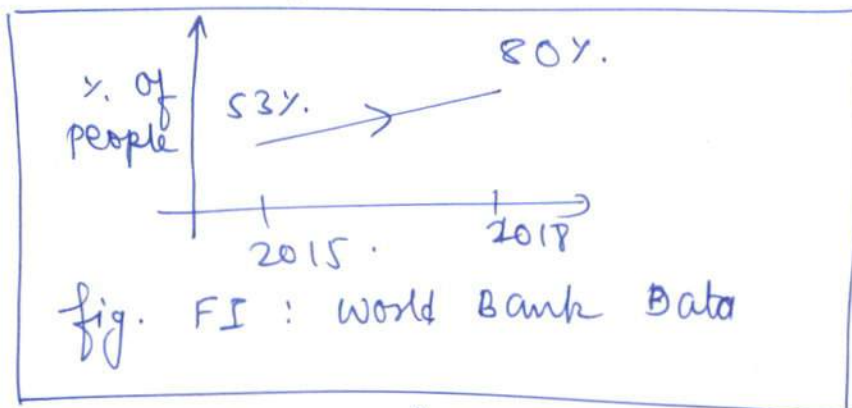 80%.
% of
people
53%.
2015.
2018
fig. FI : World Bank Data